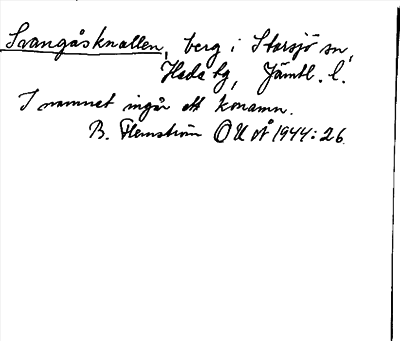 Svangåsknallen, berg i Storsjö sn,
Hede tg, Jämtl. l.
I namnet ingår ett konamn.
B. Flemström OUÅ 1944:26.